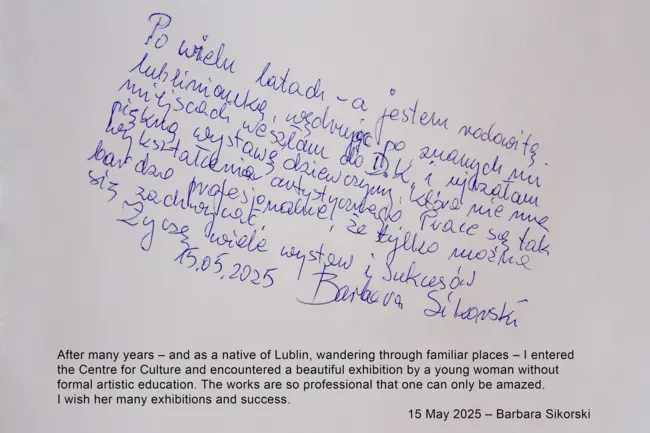 Po wielu latach – a jestem rodowitą
lublinianką, wędrując po znanych mi
miejscach weszłam do D.K. i ujrzałam
piękną wystawę dziewczyny, która nie ma
wykształcenia artystycznego. Prace są tak
bardzo profesjonalne, że tylko można
się zachwycać.
Życzę wiele wystaw i sukcesów
15.05.2025 Barbara Sikorski
After many years – and as a native of Lublin, wandering through familiar places – I entered
the Centre for Culture and encountered a beautiful exhibition by a young woman without
formal artistic education. The works are so professional that one can only be amazed.
I wish her many exhibitions and success.
15 May 2025 – Barbara Sikorski